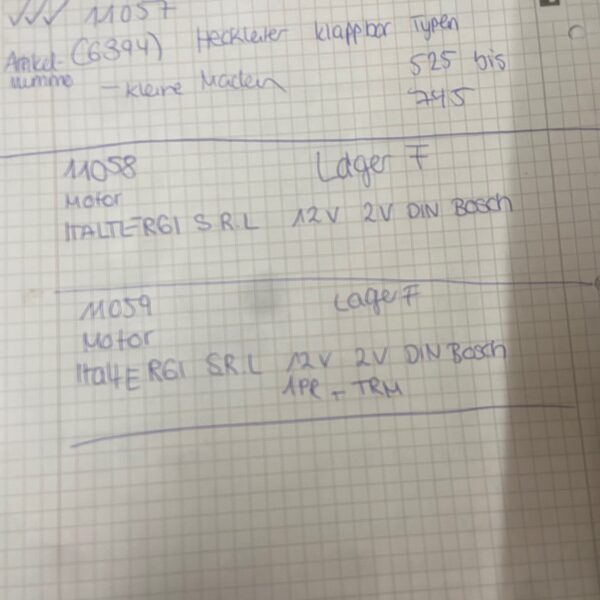 11057
Artikel- (6394) Heckleiter klappbar Typen
nummer - kleine Macken 525 bis
745
11058 Lager F
Motor
ITALTERGI S.R.L 12V 2V DIN Bosch
11059 Lager F
Motor
ItaltERGI S.R.L 12V 2V DIN Bosch
1PR - TRM